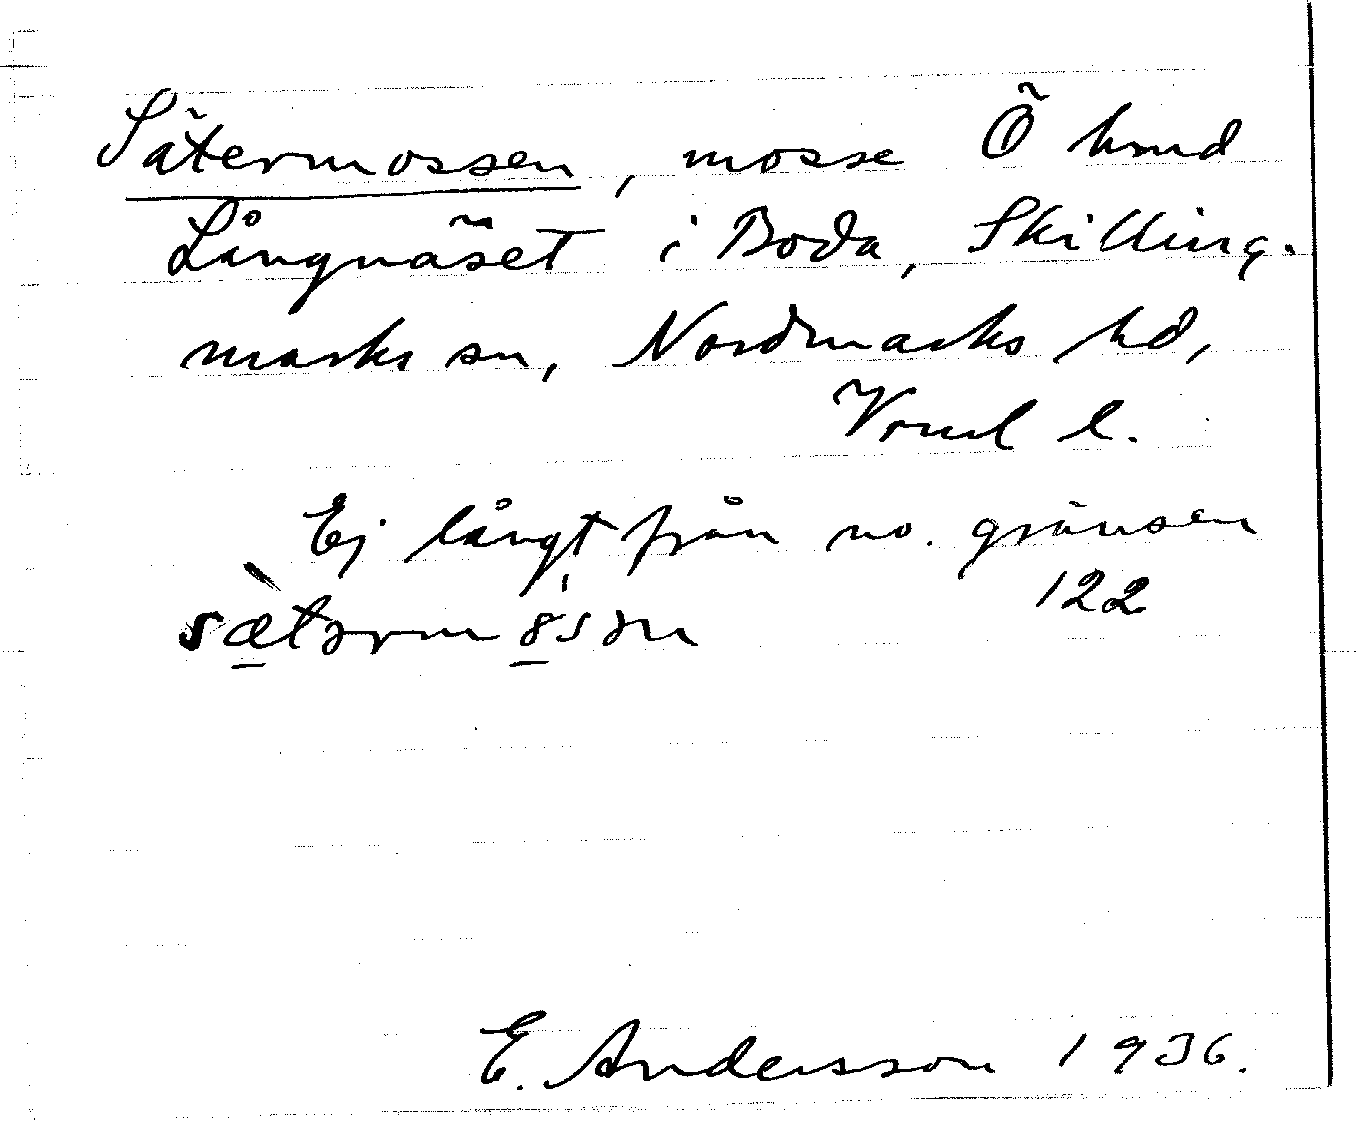 Sätermossen, mosse Ö hmd
Långnäset i Boda, Skilling-
marks sn, Nordmarks hd,
Vrml l.
Ej långt från no. gränsen
122
E. Andersson 1936.